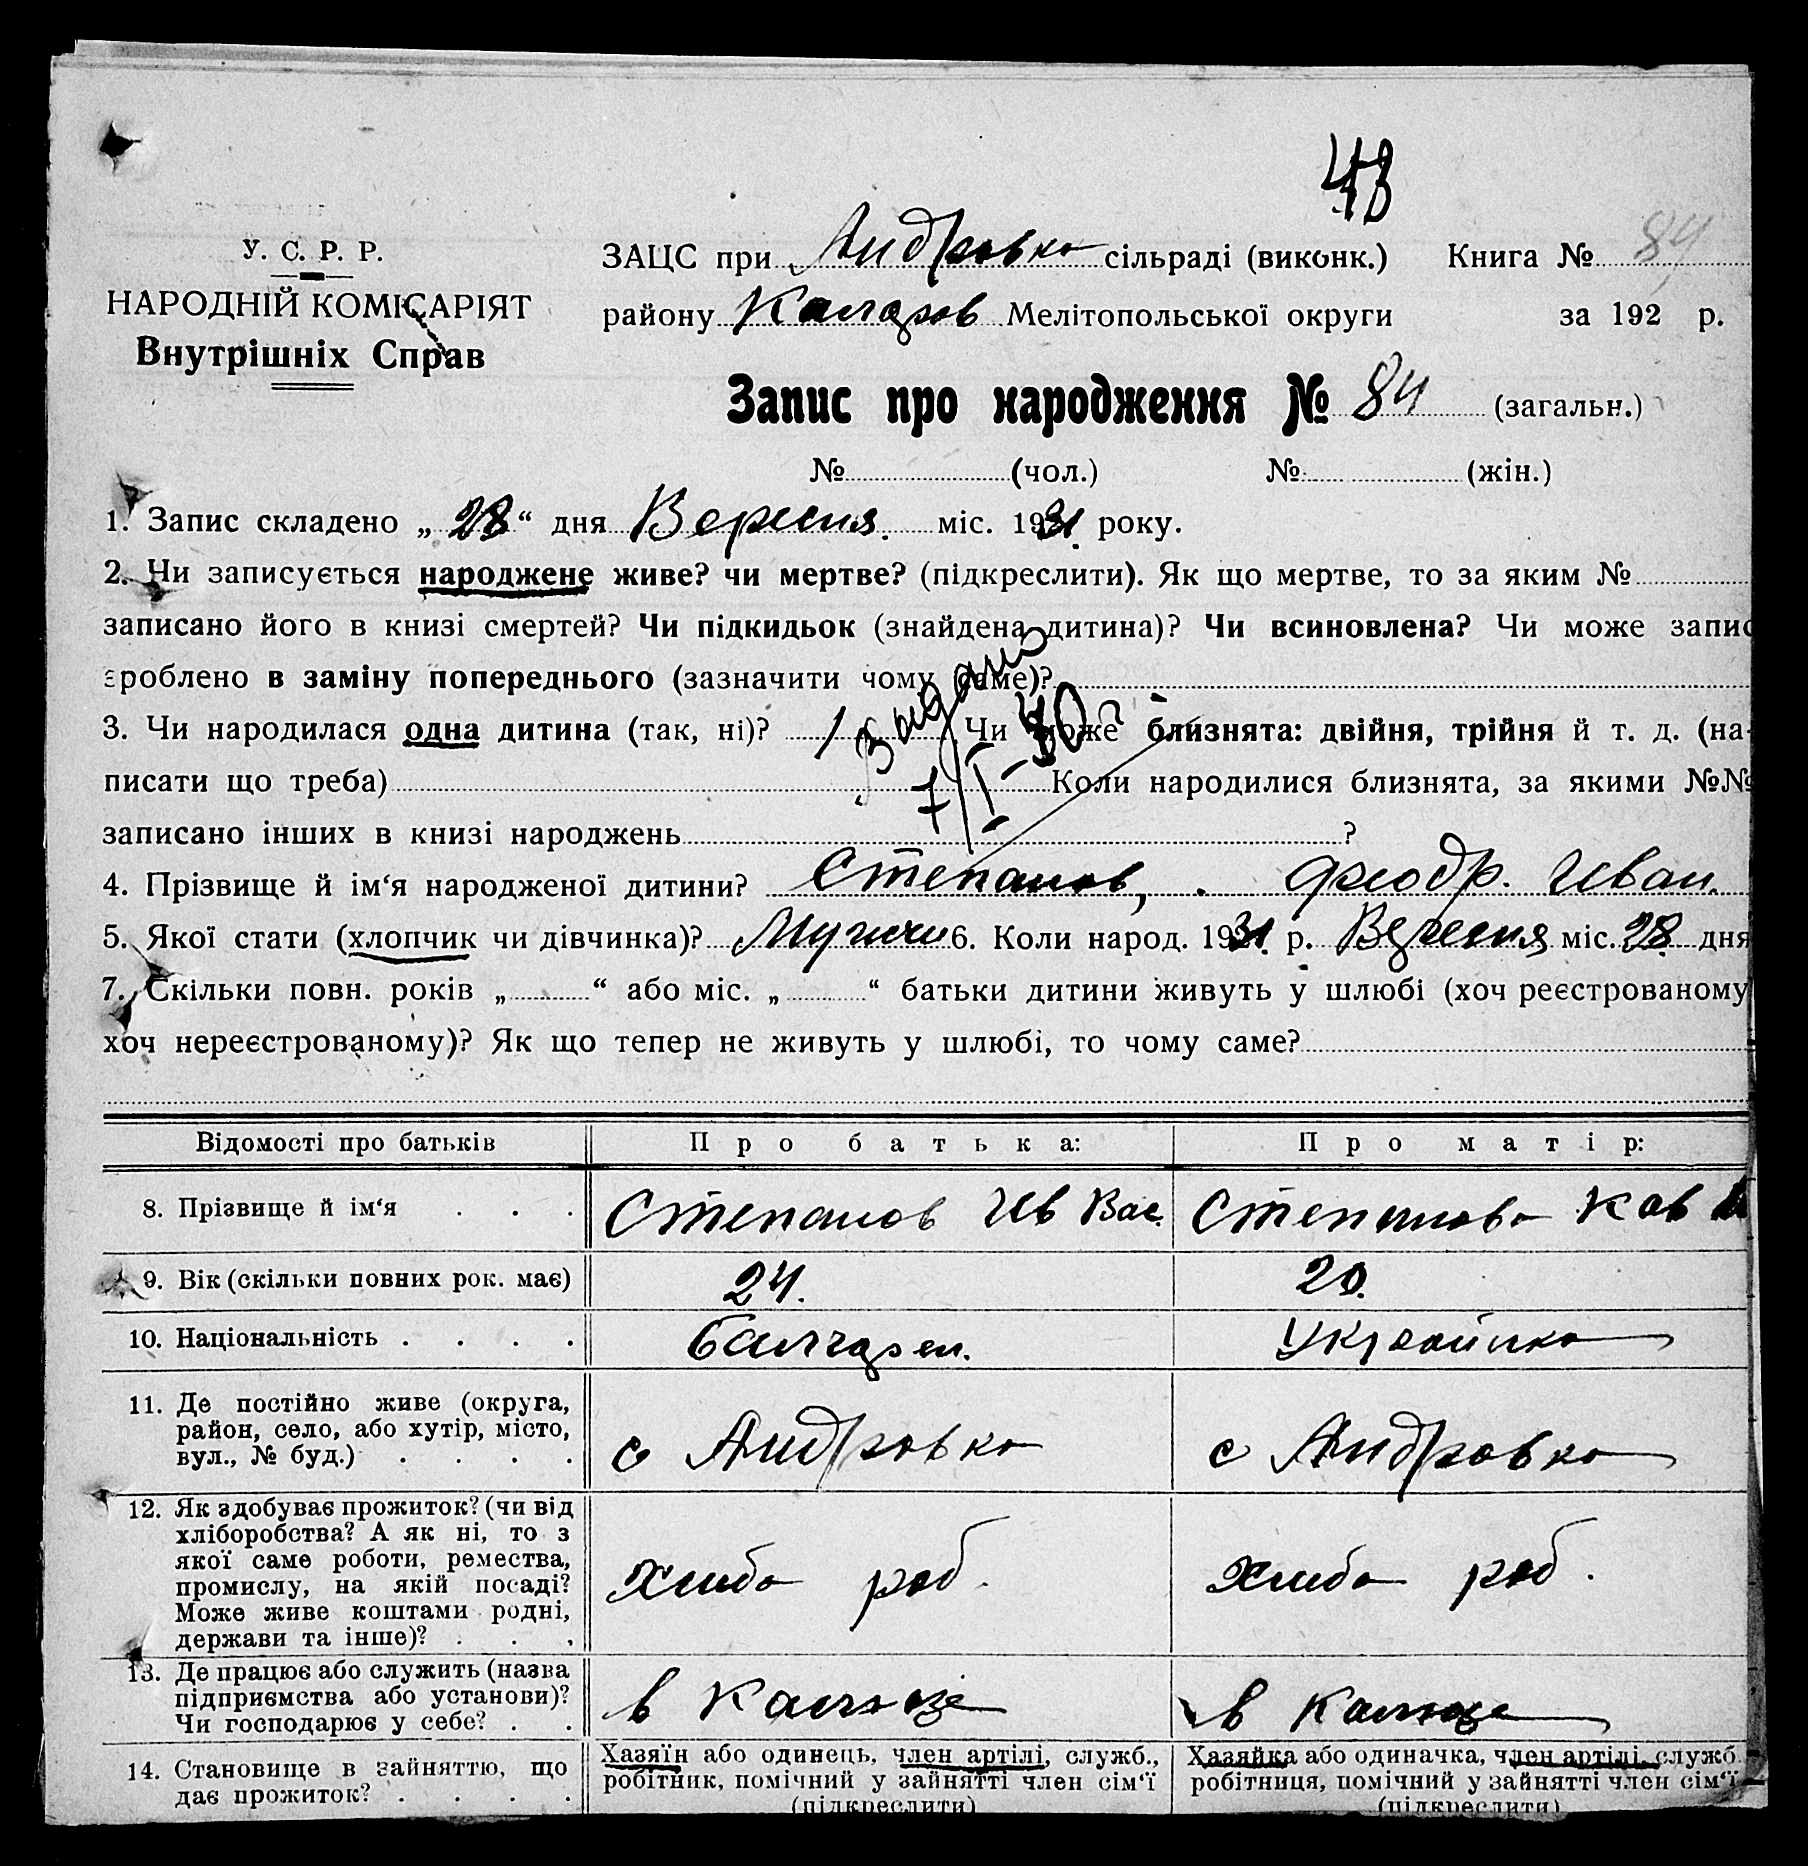 48
У. С. Р. Р.
НАРОДНІЙ КОМІСАРІЯТ
Внутрішніх Справ
ЗАЦС при Андровка сільраді (виконк.) Книга № 84
району Коларов Мелітопольської округи за 192 р.
Запис про народження № 84 (загальн.)
№ (чол.) № (жін.)
1. Запис складено „ 28 “ дня Вересня. міс. 1931. року.
2. Чи записується народжене живе? чи мертве? (підкреслити). Як що мертве, то за яким №
записано його в книзі смертей? Чи підкидьок (знайдена дитина)? Чи всиновлена? Чи може запис
зроблено в заміну попереднього (зазначити чому саме)?
Видано
3. Чи народилася одна дитина (так, ні)? 1 Чи може близнята: двійня, трійня й т. д. (на-
7/I-40
писати що треба) Коли народилися близнята, за якими №№
записано інших в книзі народжень ?
4. Прізвище й ім‘я народженої дитини? Степанов, Фиодр. Иван.
5. Якої стати (хлопчик чи дівчинка)? Мужчи 6. Коли народ. 1931. р. Вересня міс. 28. дня
7. Скільки повн. років „ “ або міс. „ “ батьки дитини живуть у шлюбі (хоч реєстрованому
хоч нереєстрованому)? Як що тепер не живуть у шлюбі, то чому саме?
Відомості про батьків Про батька: Про матір:
8. Прізвище й ім‘я . . . Степанов Ив Вас. Степанова
9. Вік (скільки повних рок. має) 24. 20.
10. Національність . . . . Балгарен. Украйінка
11. Де постійно живе (округа,
район, село, або хутір, місто,
вул., № буд.) . . . . с Андровка с Андровка
12. Як здобуває прожиток? (чи від
хліборобства? А як ні, то з
якої саме роботи, ремества,
промислу, на якій посаді?
Може живе коштами родні,
держави та інше)? . . . хлибо роб. хлибо роб.
13. Де працює або служить (назва
підприємства або установи)?
Чи господарює у себе? . . в Калхозе в Калхозе
14. Становище в зайняттю, що
дає прожиток? . . . .
Хазяїн або одинець, член артілі, служб.,
робітник, помічний у зайнятті член сім‘ї
(підкреслити)
Хазяйка або одиначка, член артілі, служб.
робітниця, помічний у зайнятті член сім‘ї
(підкреслити)